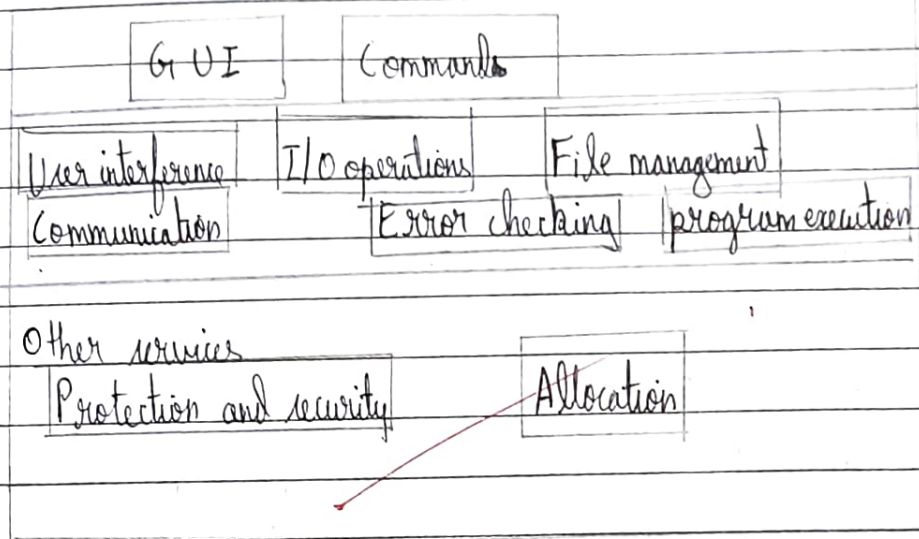 GUI Commands
User interference I/O operations File management
Communication Error checking program execution
Other services
Protection and security Allocation